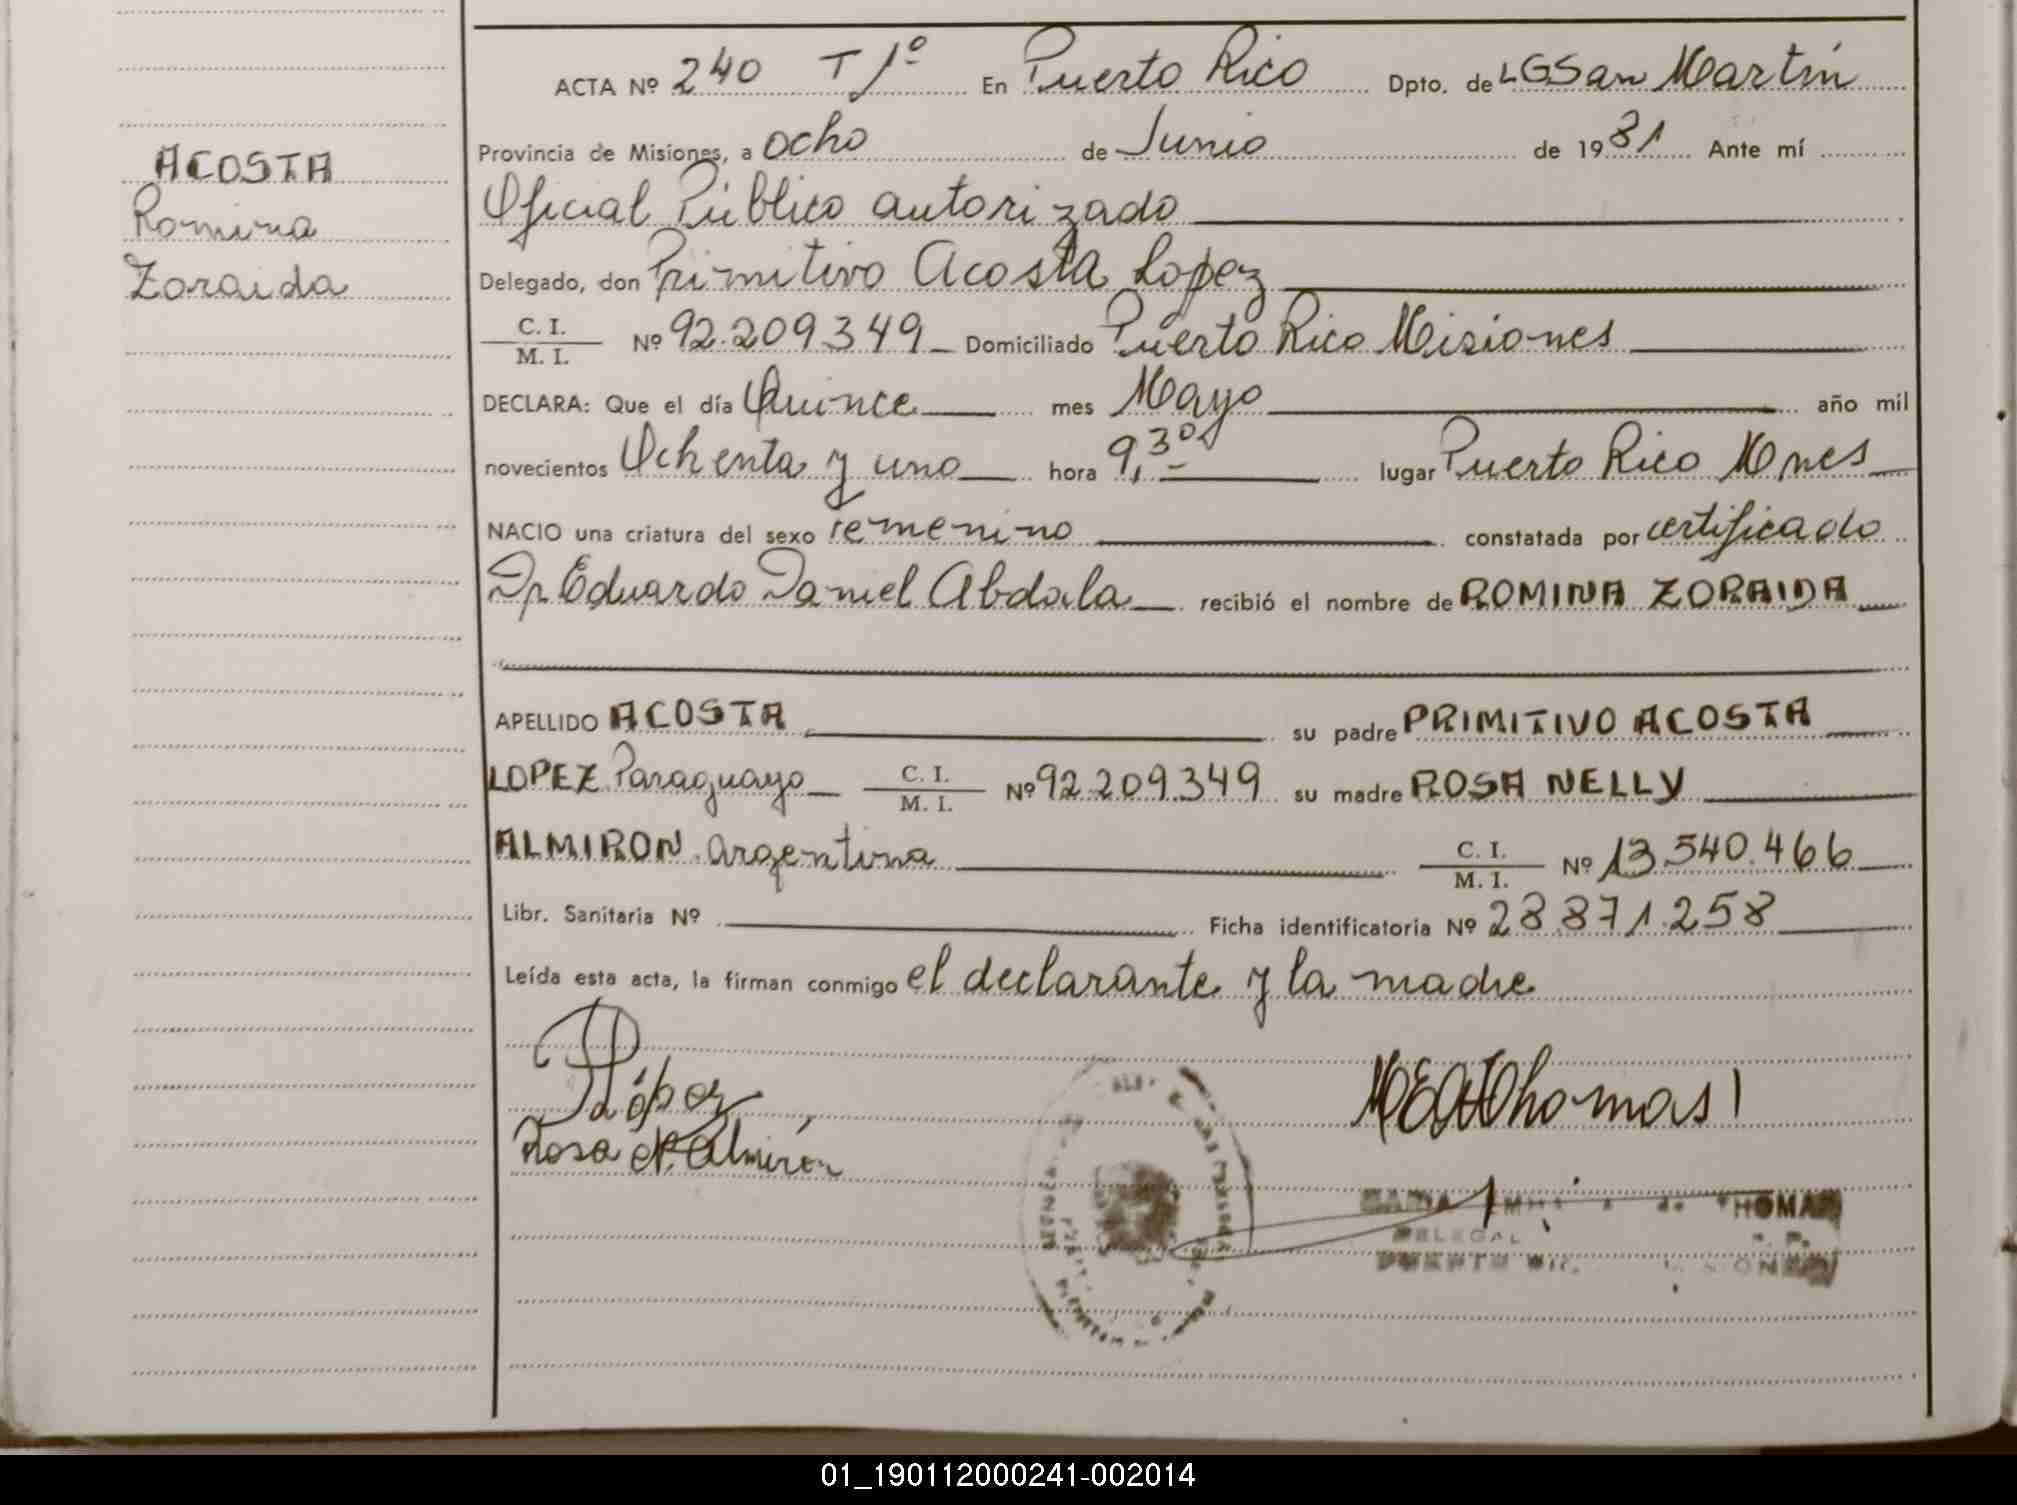 ACOSTA
Romina
Zoraida
ACTA Nº 240 T 1º En Puerto Rico Dpto. de LGSan Martín
Provincia de Misiones, a ocho de Junio de 1981 Ante mí
Oficial Público autorizado
Delegado, don Primitivo Acosta Lopez
C. I. / M. I. Nº 92.209.349 Domiciliado Puerto Rico Misiones
DECLARA: Que el día Quince mes Mayo año mil
novecientos Ochenta y uno hora 9,30 lugar Puerto Rico Mnes
NACIO una criatura del sexo femenino constatada por certificado
Dr Eduardo Daniel Abdala recibió el nombre de ROMINA ZORAIDA
APELLIDO ACOSTA su padre PRIMITIVO ACOSTA
LOPEZ Paraguayo C. I. / M. I. Nº 92.209.349 su madre ROSA NELLY
ALMIRON argentina C. I. / M. I. Nº 13.540.466
Libr. Sanitaria Nº Ficha identificatoria Nº 28.871.258
Leída esta acta, la firman conmigo el declarante y la madre
López
Rosa N. Almirón
Thomas
THOMAS
PUERTO
01_190112000241-002014